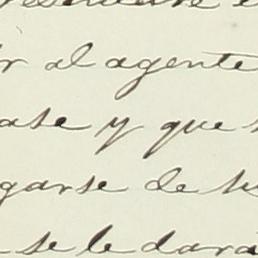 r al agente
ase y que
garse de su
se le dará